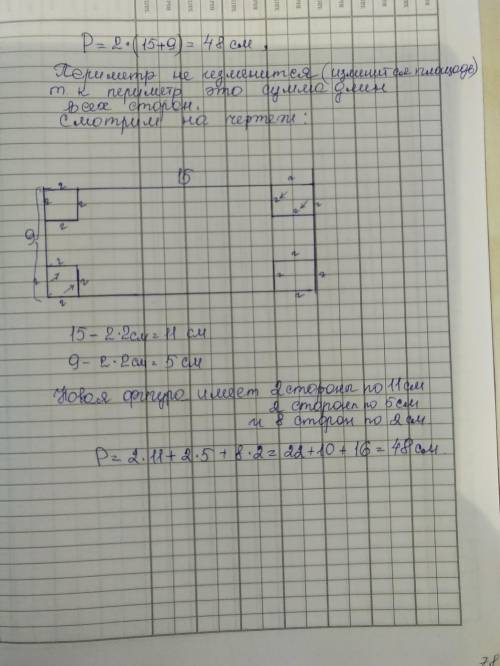 P = 2·(15+9) = 48 см.
Периметр не изменится (изменится площадь)
т.к периметр это сумма длин
всех сторон.
Смотрим на чертеж:
15
2 2
2 2 2 2
9 2 2
2 2
2 2 2 2
2 2
15 - 2·2см = 11 см
9 - 2·2см = 5 см
Новая фигура имеет 2 стороны по 11 см
2 стороны по 5 см
и 8 сторон по 2 см
P = 2·11 + 2·5 + 8·2 = 22 + 10 + 16 = 48 см